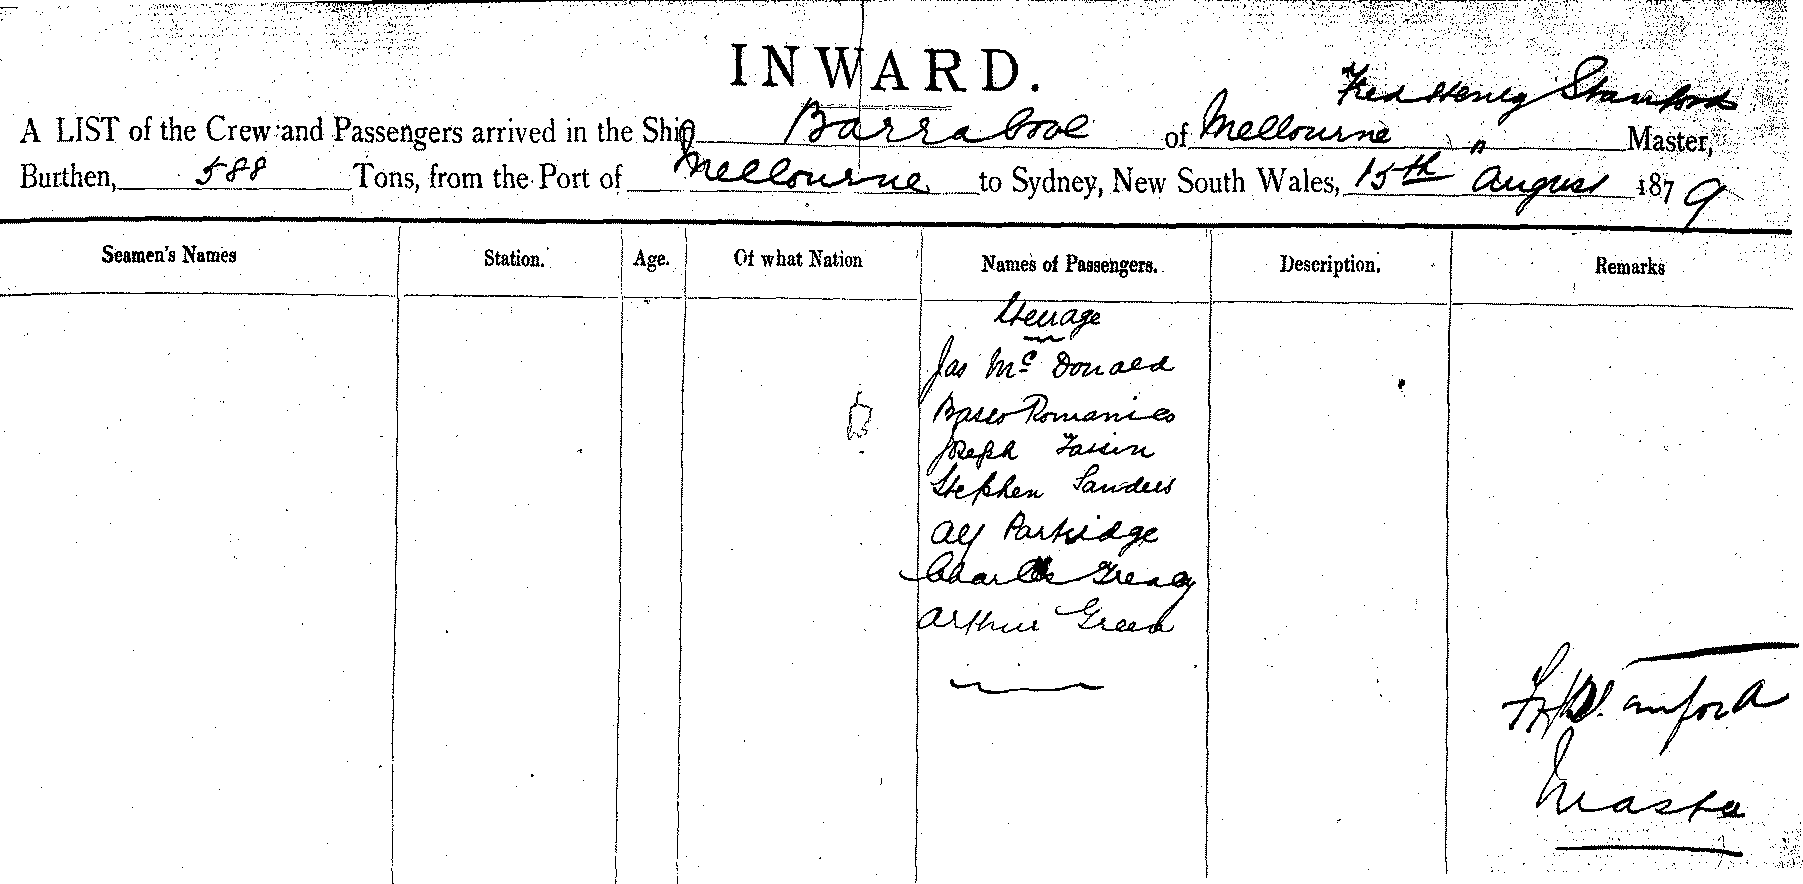 INWARD.
Fred Henry Stanford
A LIST of the Crew and Passengers arrived in the Ship Barrabool of Melbourne " Master,
Burthen, 588 Tons, from the Port of Melbourne to Sydney, New South Wales, 15th August 1879
Seamen's Names Station. Age. Of what Nation Names of Passengers. Description. Remarks
Steerage
Jas McDonald
Romanies
Joseph
Stephen Sanders
Alf Partridge
Charles
Arthur Green
Stanford
Master